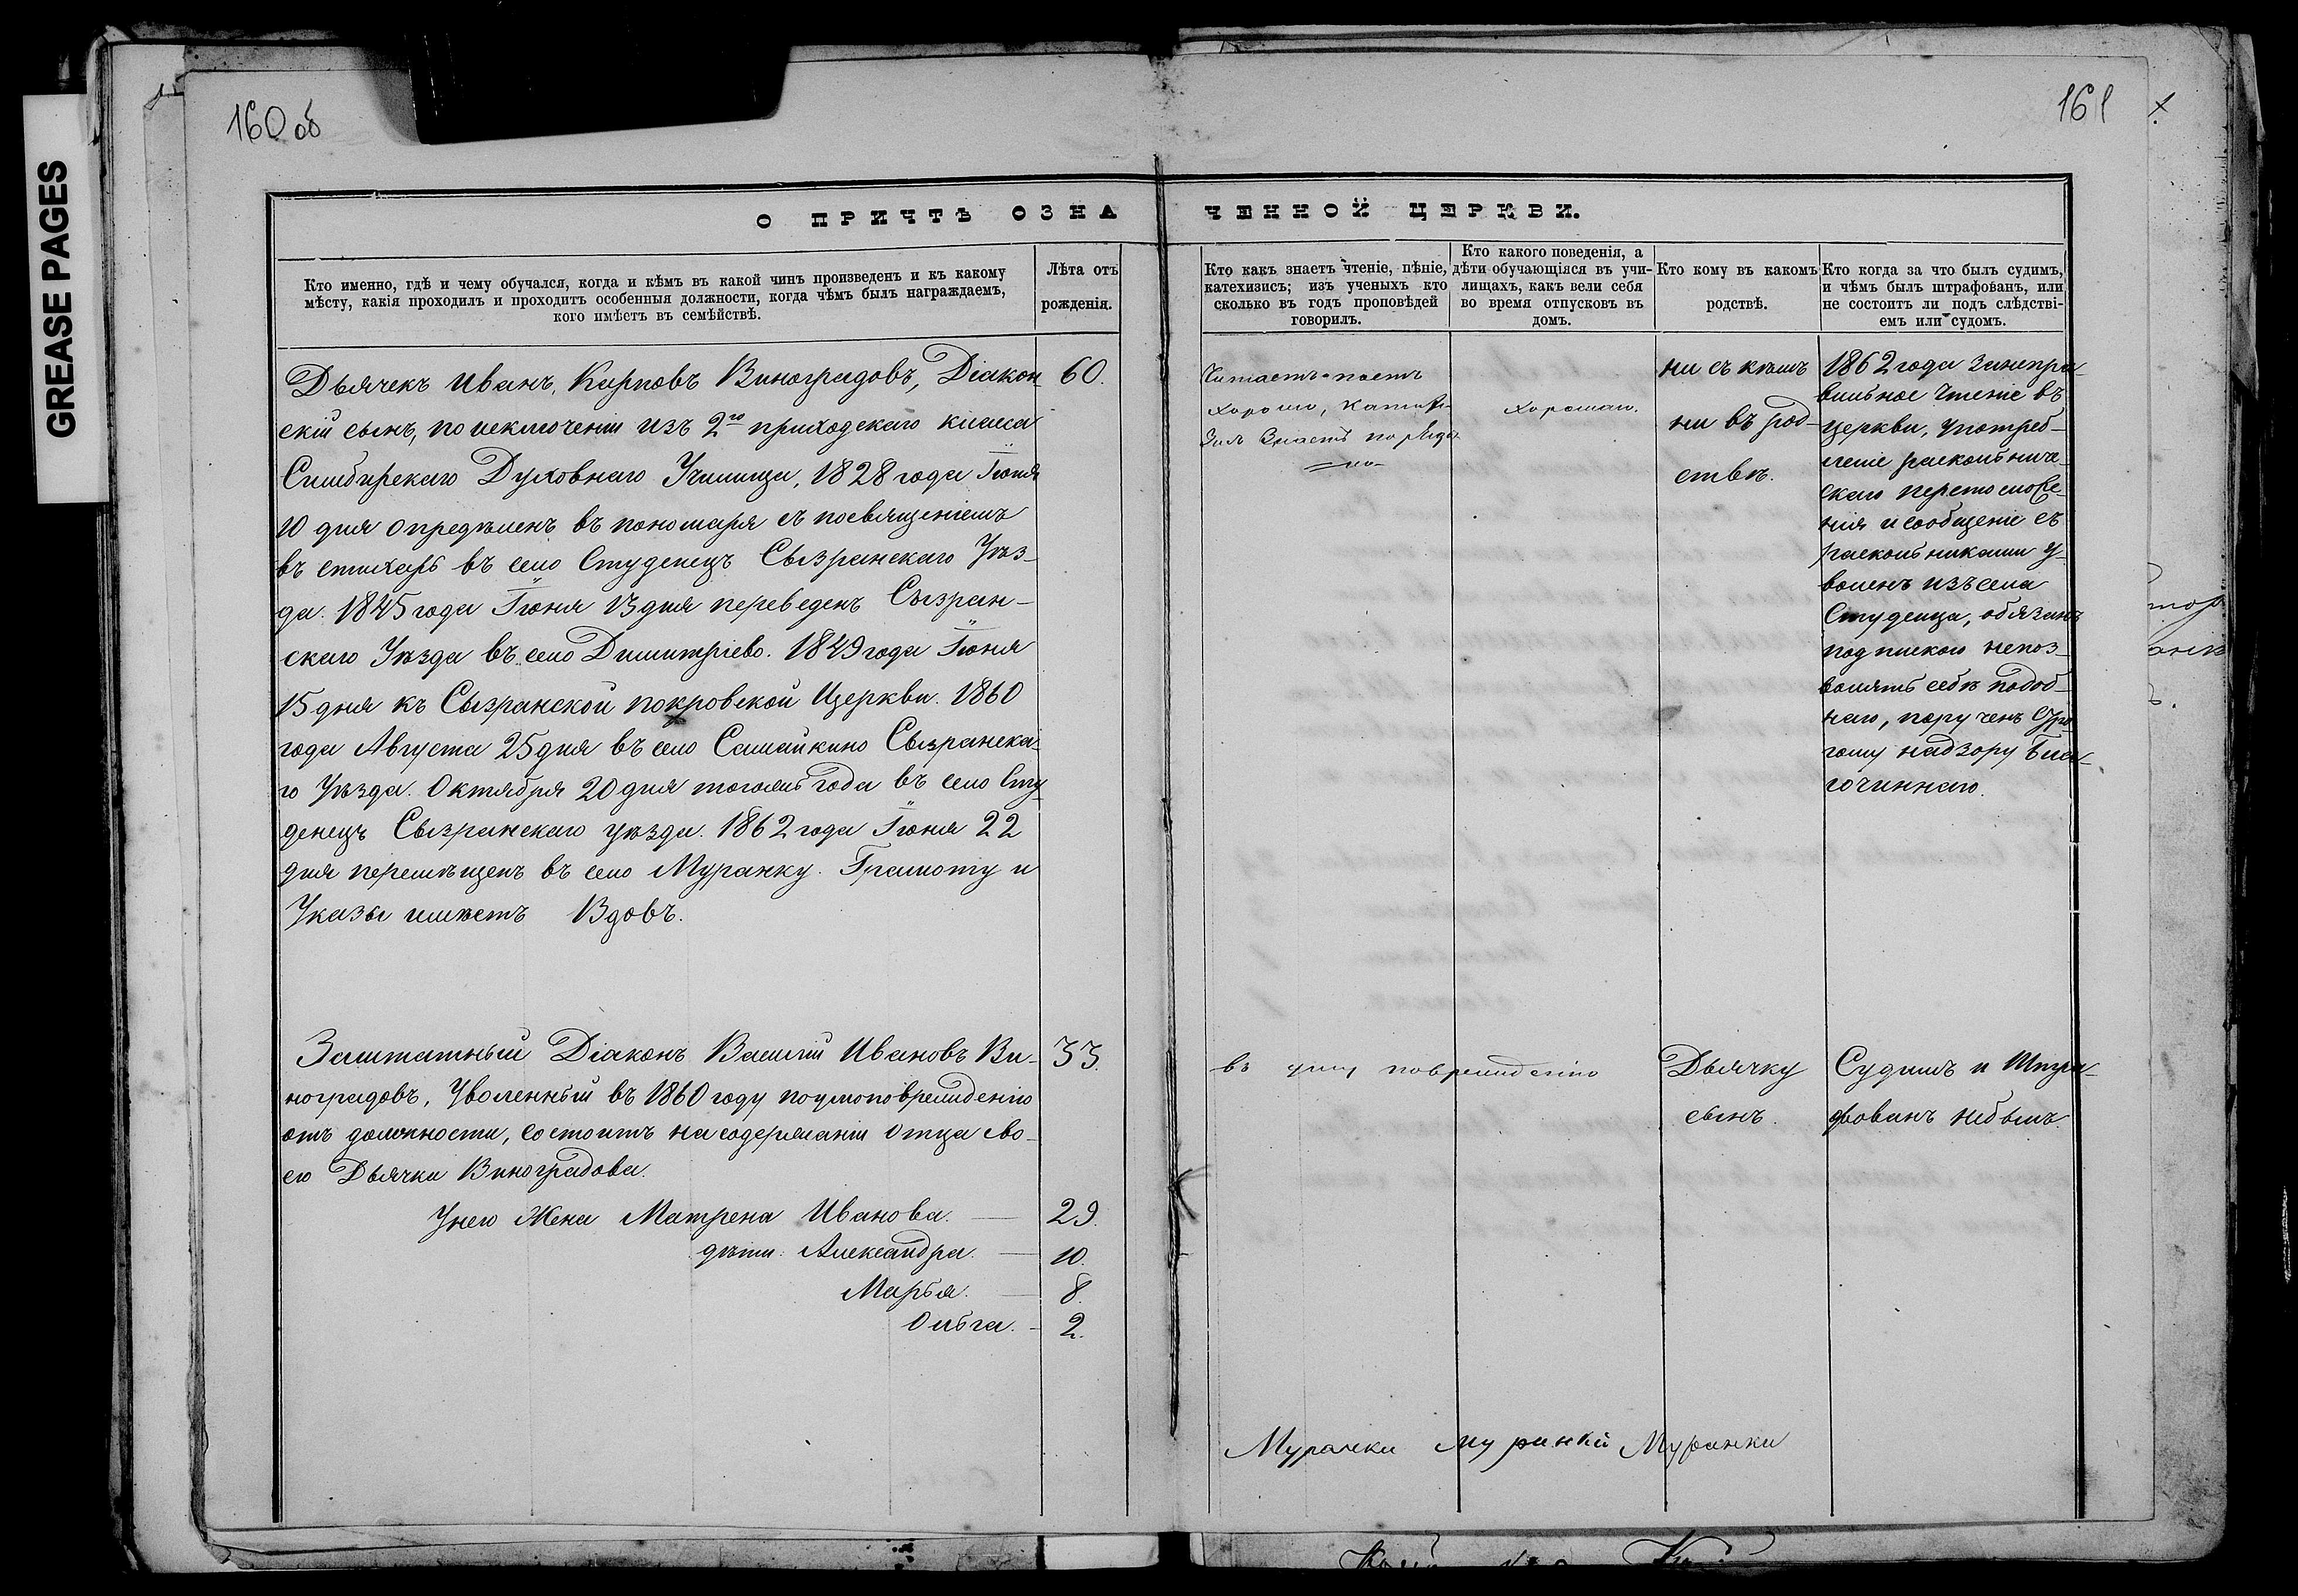 GREASE PAGES
160 об
161
О ПРИЧТѢ ОЗНА
ЧЕННОЙ ЦЕРКВИ.
Кто именно, гдѣ и чему обучался, когда и кѣмъ въ какой чинъ произведенъ и къ какому
мѣсту, какія проходилъ и проходитъ особенныя должности, когда чѣмъ былъ награждаемъ,
кого имѣетъ въ семѣйствѣ.
Лѣта отъ
рожденія.
Кто какъ знаетъ чтеніе, пѣніе,
катехизисъ; изъ ученыхъ кто
сколько въ годъ проповѣдей
говорилъ.
Кто какого поведенія, а
дѣти обучающіяся въ учи-
лищахъ, какъ вели себя
во время отпусковъ въ
домъ.
Кто кому въ какомъ
родствѣ.
Кто когда за что былъ судимъ,
и чѣмъ былъ штрафованъ, или
не состоитъ ли подъ слѣдстві-
емъ или судомъ.
Дьячекъ Иванъ, Карповъ Виноградовъ, Діакон
скій сынъ, по исключеніи изъ 2го приходскаго класса
Симбирскаго Духовнаго Училища, 1828 года Іюня
10 дня опредѣленъ въ пономаря съ посвященіемъ
въ стихарь въ село Студенецъ Сызранскаго Уѣз-
да. 1845 года Іюня 13 дня переведенъ Сызран-
скаго Уѣзда въ село Димитріево. 1849 года Іюня
15 дня къ Сызранской покровской Церкви. 1860
года Августа 25 дня въ село Самайкино Сызранска-
го Уѣзда. Октября 20 дня тогожъ года въ село Сту-
денецъ Сызранскаго уѣзда. 1862 года Іюня 22
дня перемѣщенъ въ село Муранку. Грамоту и
Указы имѣетъ Вдовъ.
60.
Читаетъ и поетъ
хорошо, катихи-
зисъ знаетъ порядоч
=но=
хорошаго.
ни съ кѣмъ
ни въ род-
ствѣ.
1862 года за непра-
вильное чтеніе въ
церкви, употреб-
леніе раскольниче-
скаго перстосложе-
нія и сообщеніе съ
раскольниками у-
воленъ изъ села
Студенца, обязанъ
подпискою непоз-
волять себѣ подоб-
наго, порученъ стро-
гому надзору Бла-
гочиннаго.
Заштатный Діаконъ Василій Ивановъ Ви-
ноградовъ, Уволенный въ 1860 году поумоповрежденію
отъ должности, состоитъ на содержаніи отца сво-
его Дьячка Виноградова.
33.
въ уму поврежденію
Дьячку
сынъ.
Судимъ и Штра-
фованъ небылъ.
Унего Жена Матрена Иванова. — 29.
дѣти: Александра. — 10.
Марья. — 8.
Ольга. — 2.
Муранки Муранки Муранки